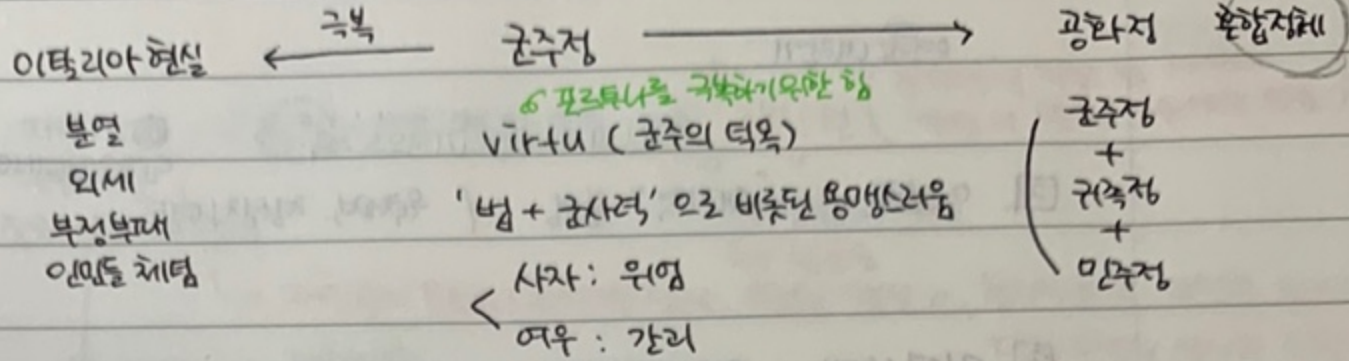 이탈리아 현실 ← 극복 군주정 → 공화정 혼합정체
분열
외세
부정부패
인민들 체념
포르투나를 극복하기 위한 힘
virtu (군주의 덕목)
'법 + 군사력'으로 비롯된 용맹스러움
사자 : 위엄
여우 : 간괴
군주정
+
귀족정
+
민주정